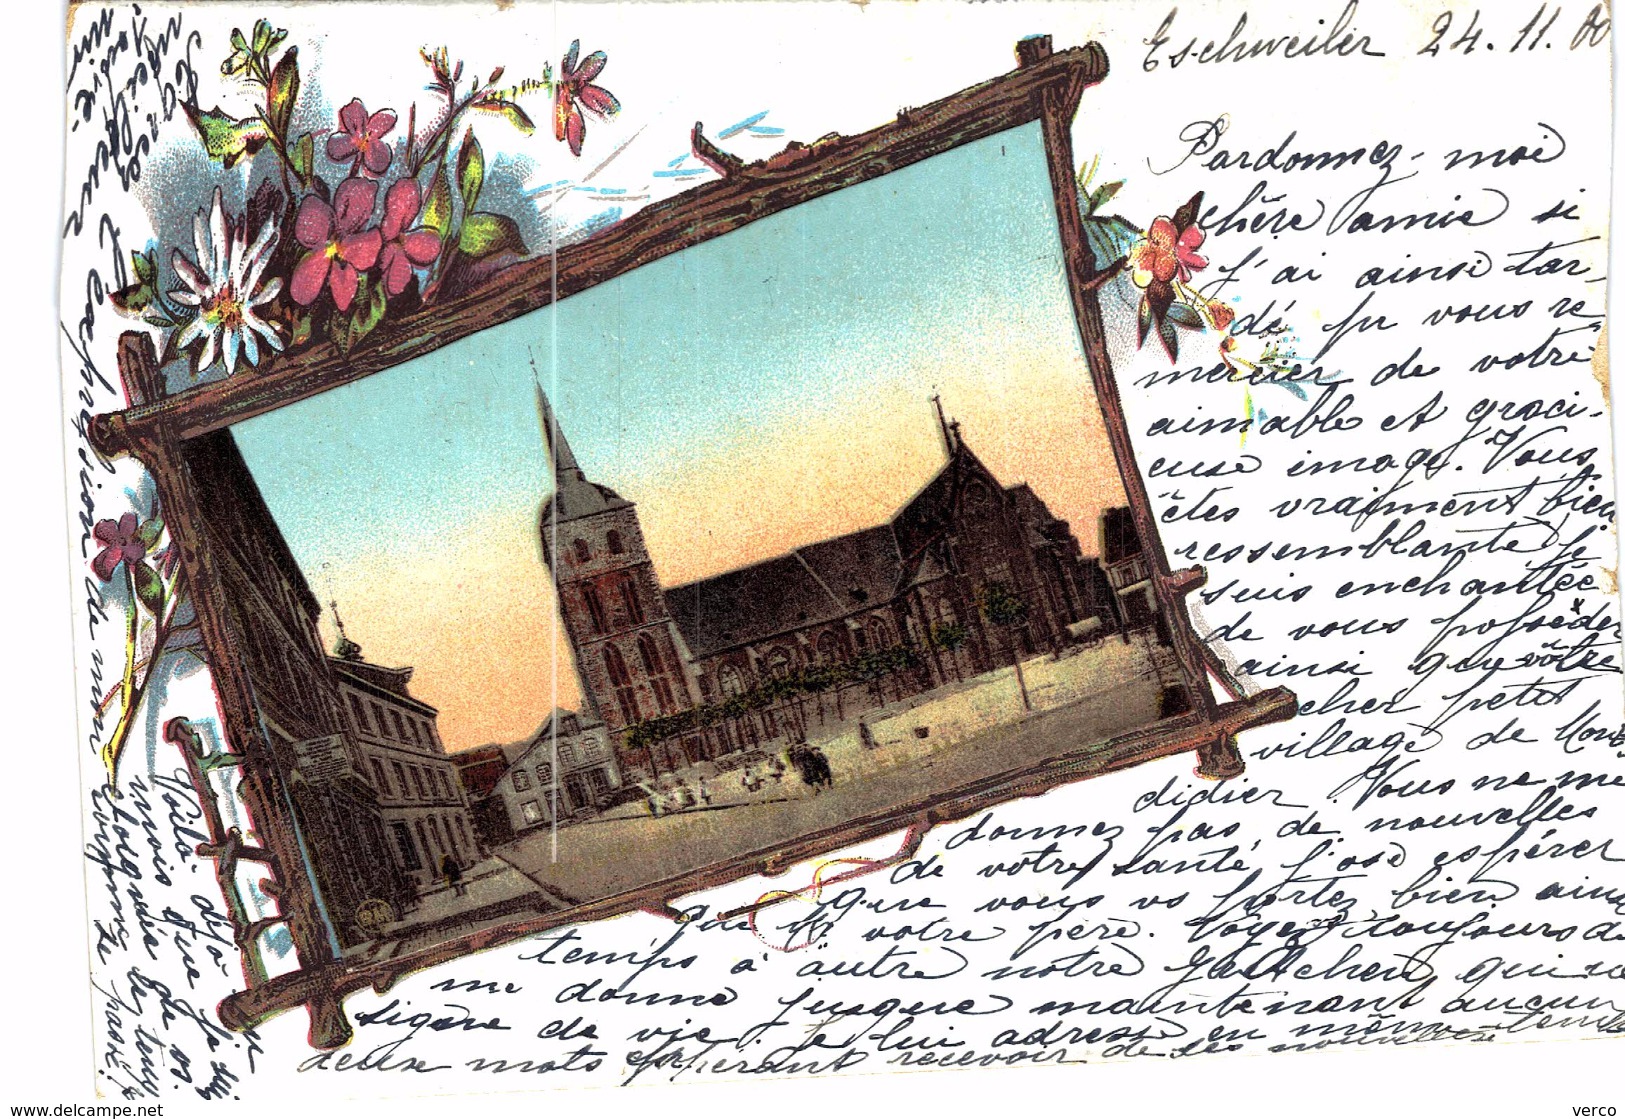 Eschweiler 24.11.00
Pardonnez-moi
chère amie si
j'ai ainsi tar-
dé pr vous re-
mercier de votre
aimable et graci-
euse image. Vous
êtes vraiment bien
ressemblante, je
suis enchantée
de vous posséder
ainsi que vôtre
cher petit
village de Mon
didier. Vous ne me
donnez pas de nouvelles
de votre santé, j'ose espérer
que vous vs portez bien ainsi
que Mr votre père. Voyez toujours de
temps à autre notre qui ne
me donne jusque maintenant aucun
signe de vie. Je lui adresse en même temps
deux mots espérant recevoir de ses nouvelles
Voilà déjà
que j'ai
vous
éloignée de
l'expression de mon
meilleur
souve-
nir
verco
www.delcampe.net